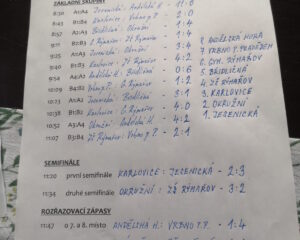 ZÁKLADNÍ SKUPINY
8:30 A1:A2 Jesenická : Andělská H. 11:0
8:40 B1:B2 Karlovice : Vrbno p. P. 2:0
A3:A4 Břidličná : Okružní 1:4
9:11 B3:B4 G. Rýmařov : ZŠ Rýmařov 1:2
9:23 A1:A3 Jesenická : Okružní 3:4
9:36 B1:B3 Karlovice : ZŠ Rýmařov 4:2
9:54 A2:A4 Andělská H. : Břidličná 0:6
10:08 B2:B4 Vrbno p. P. : G. Rýmařov 1:2
10:23 A1:A4 Jesenická : Břidličná 3:2
10:38 B1:B4 Karlovice : G. Rýmařov 4:0
10:52 A3:A2 Okružní : Andělská H. 4:2
11:07 B3:B2 ZŠ Rýmařov : Vrbno p. P. 2:1
8. ANDĚLSKÁ HORA
7. VRBNO P. PRADĚDEM
6. GYM. RÝMAŘOV
5. BŘIDLIČNÁ
4. ZŠ RÝMAŘOV
3. KARLOVICE
2. OKRUŽNÍ
1. JESENICKÁ
SEMIFINÁLE
11:20 první semifinále KARLOVICE : JESENICKÁ - 2:3
11:34 druhé semifinále OKRUŽNÍ : ZŠ RÝMAŘOV - 3:2
ROZŘAZOVACÍ ZÁPASY
11:47 o 7. a 8. místo ANDĚLSKÁ H. : VRBNO P.P. - 1:4